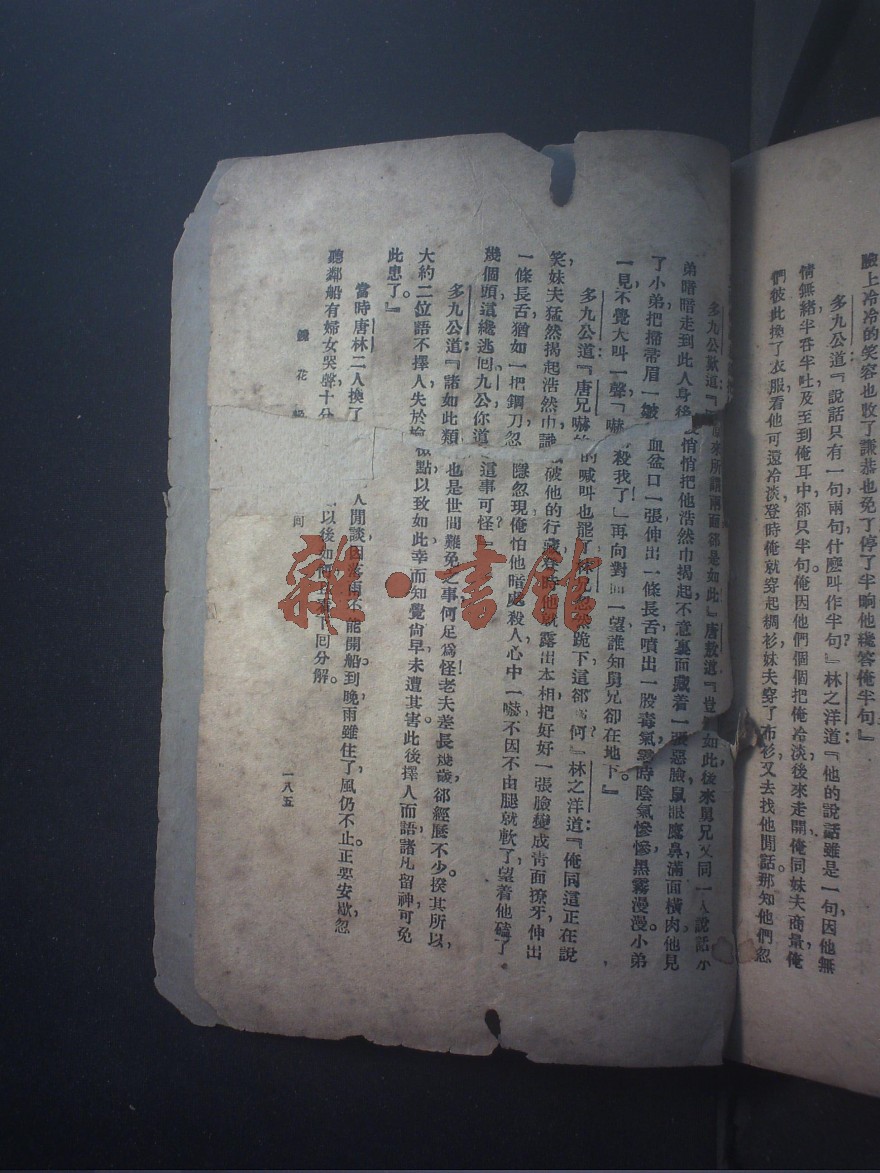 臉上冷冷的笑容也收了謙恭也免了停了半晌他纔答俺半句』
多九公道『說話只有一句兩句什麽叫作半句』林之洋道『他的說話雖是一句因他無
情無緒半吞半吐及至到俺耳中卻只半句俺因他們個個把俺冷淡後來走開俺同妹夫商量俺
們彼此換了衣服看他可還冷淡登時俺就穿起綢衫妹夫穿了布衫又去找他閒話那知他們忽
多九公歎道『來所謂兩面卻是如此』唐敖道『豈如此後來舅兄又同一人說話小
弟暗暗走到此人身後悄悄把他浩然巾揭起不意裏面藏着一張惡臉鼠眼鷹鼻滿面橫肉他見
了小弟把掃帚眉一皺血盆口一張伸出一條長舌噴出一股毒氣霎時陰氣慘慘黑霧漫漫小弟
一見不覺大叫一聲『嚇殺我了』再向對面一望誰知舅兄卻在地下。』
多九公道『唐兄嚇的喊叫也罷林兄忽然跪下這卻爲何』林之洋道『俺同這正在說
笑妹夫猛然揭起浩然巾識破他的行藏登時他就露出本相把好好一張臉變成青面獠牙伸出
一條長舌猶如一把鋼刀忽隱忽現俺怕他暗處殺人心中一嚇不因不由腿就軟了望着他磕了
幾個頭這纔逃回九公你道這事可怪』
多九公道『諸如此類也是世間難免之事何足爲怪老夫差長幾歲卻經歷不少揆其所以
大約二位語不擇人失於檢點以致如此幸而知覺尙早未遭其害此後擇人而語諸凡留神可免
此患了。』
當時唐林二人換了人閒談因落雨不能開船到晚雨雖住了風仍不止正要安歇忽
聽鄰船有婦女哭聲十分以後如何下回分解。
鏡花
一八五
雜·書館